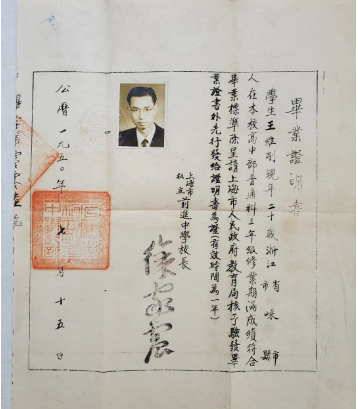 畢業證明書
學生王雄剛現年二十歲浙江省嵊縣市
人在本校高中部普通科三年級修業期滿成績符合
畢業標準除呈請上海市人民政府教育局核予驗發畢
業證書外先行發給證明書為證(有效時間為一年)
上海市私立前進中學校長
公曆一九五〇年七月十五日